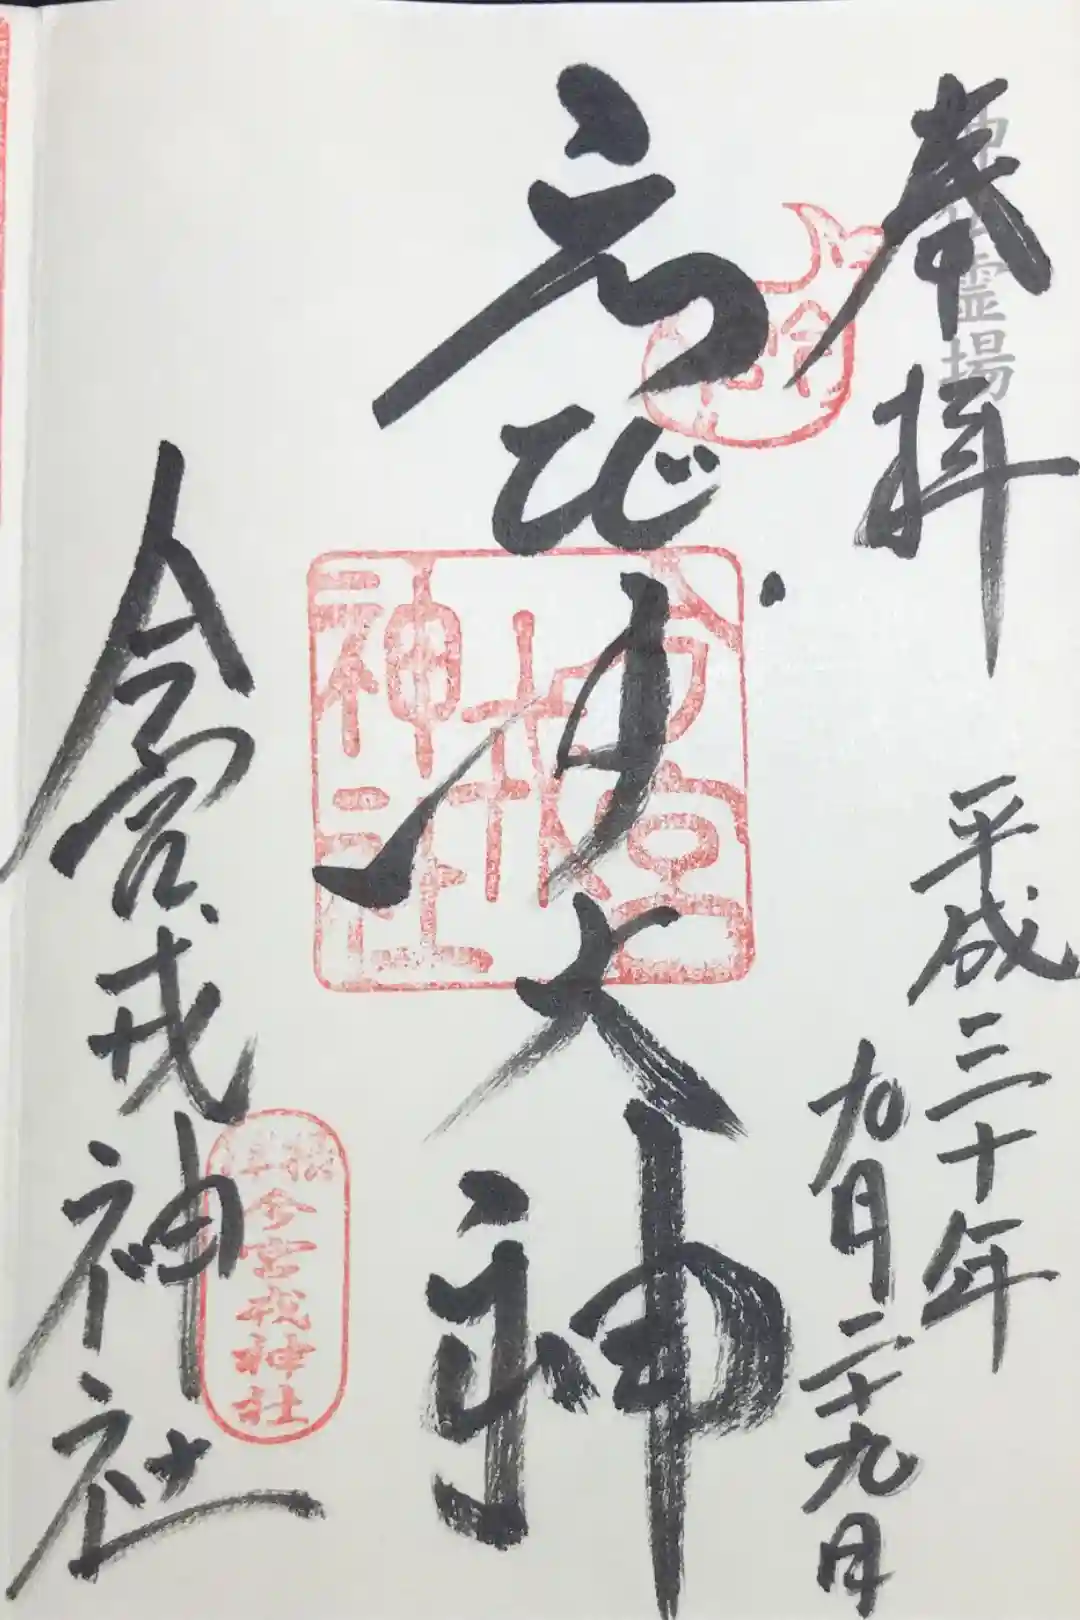 神仏霊場
奉拝
平成三十年
九月二十九日
ゑびす大神
今宮戎神社
今宮戎神社
今宮戎神社